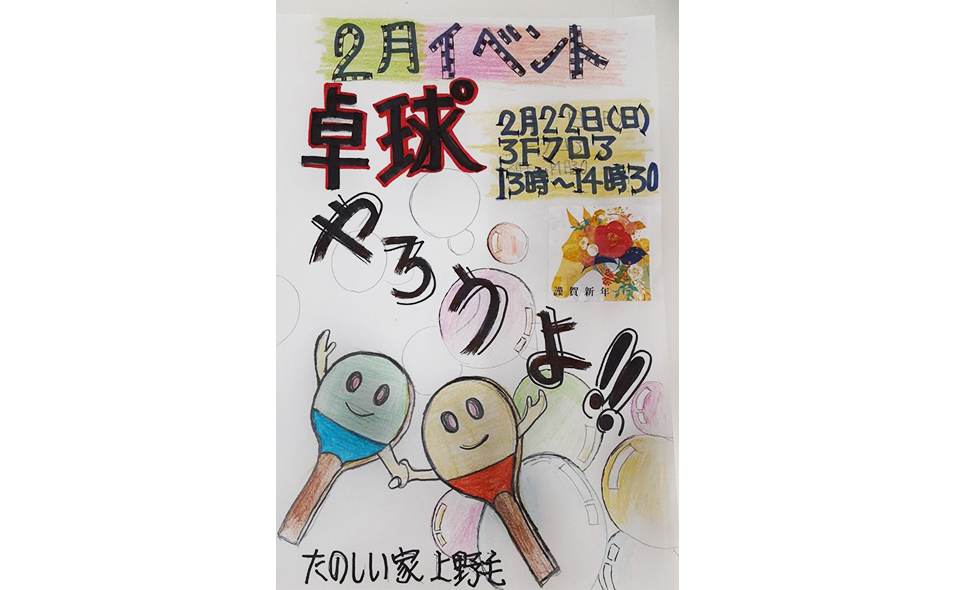 2月イベント
卓球
2月22日(日)
3Fフロア
13時～14時30
やろうよ!!
謹賀新年
たのしい家上野毛